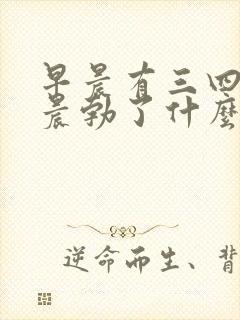 早晨有三四
晨勃了什麼
逆命而生、背